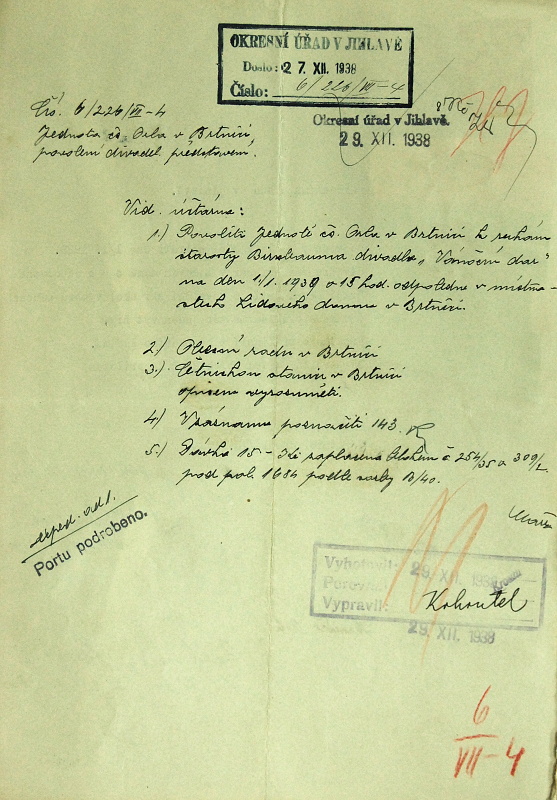 OKRESNÍ ÚŘAD V JIHLAVĚ
Došlo: 27. XII. 1938
Číslo: 6/226/VII-4
Okresní úřad v Jihlavě.
29. XII. 1938
Čís. 6/226/VII-4
Jednota čs. Orla v Brtnici
povolení divadel. představení.
Vid. účtárna:
1.) Povoliti Jednotě čs. Orla v Brtnici k rukám
starosty divadlo „Vánoční dar“
na den 1./1. 1939 o 15 hod. odpoledne v místno-
stech Lidového domu v Brtnici.
2.) Obecní radu v Brtnici
3.) Četnickou stanici v Brtnici
opisem vyrozuměti.
4.) Vzáznamu poznačiti 143.
5.) Dávka 15 - Kč zaplacena 254/35 a 309/2
pod pol. 1684 podle sazby B/40.
exped. od 1.
Portu podrobeno.
Vyhotovil: 29. XII. 1938
Porovnal:
Vypravil: Kohoutel
29. XII. 1938
6
VII-4